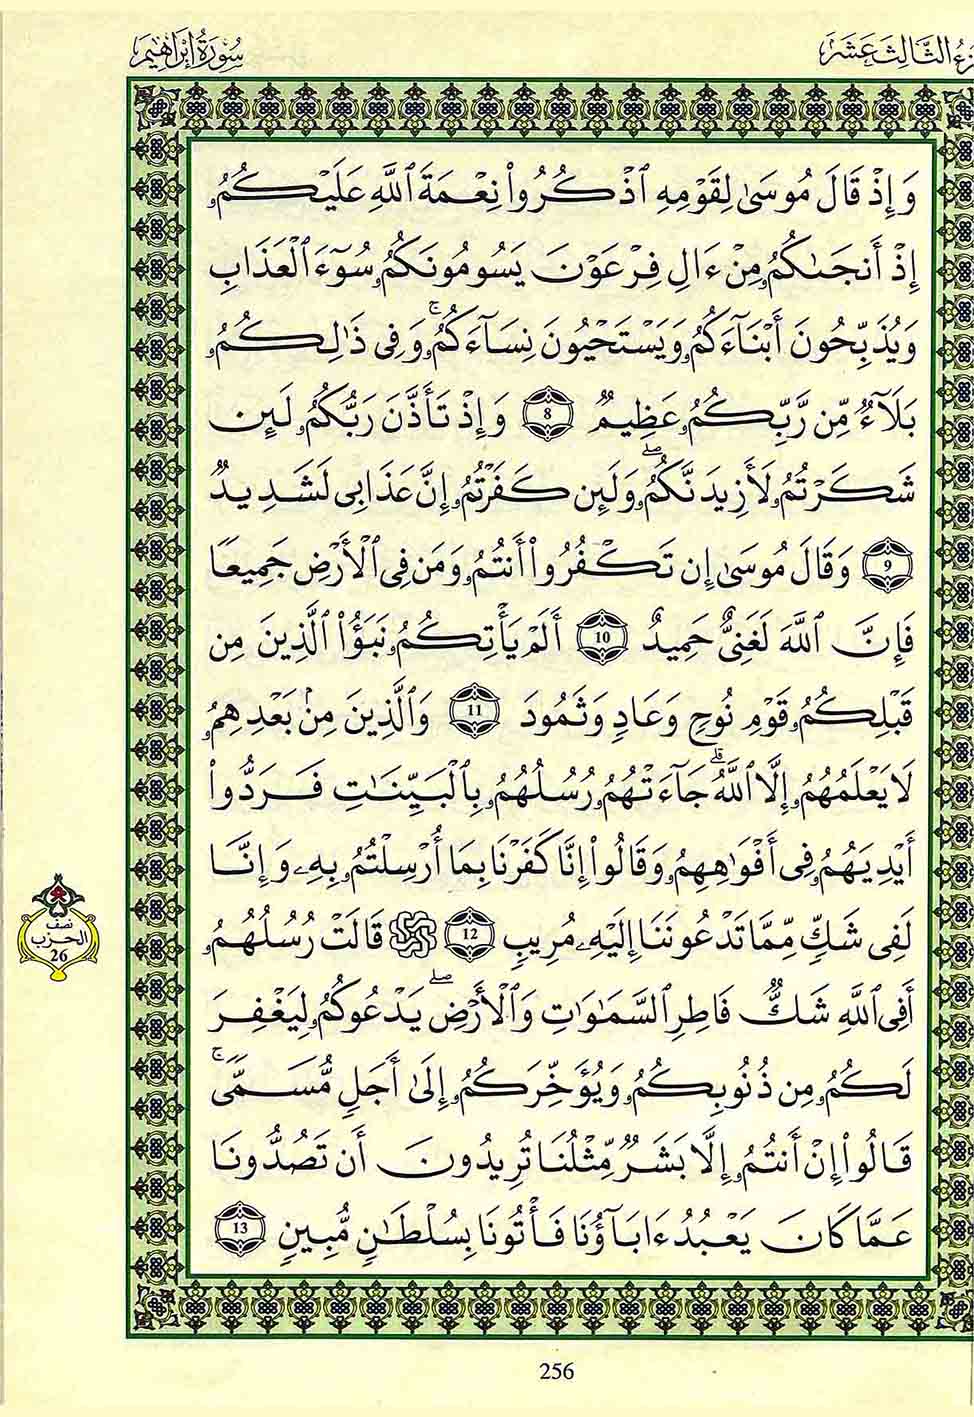 الجزء الثالث عشر
سورة إبراهيم
وَإِذْ قَالَ مُوسَىٰ لِقَوْمِهِ ٱذْكُرُواْ نِعْمَةَ ٱللَّهِ عَلَيْكُمُۥ
إِذْ أَنجَىٰكُمُۥ مِنْ ءَالِ فِرْعَوْنَ يَسُومُونَكُمُۥ سُوٓءَ ٱلْعَذَابِ
وَيُذَبِّحُونَ أَبْنَآءَكُمُۥ وَيَسْتَحْيُونَ نِسَآءَكُمُۥۚ وَفِى ذَٰلِكُمُۥ
بَلَآءٌ مِّن رَّبِّكُمُۥ عَظِيمٌ 8 وَإِذْ تَأَذَّنَ رَبُّكُمُۥ لَئِن
شَكَرْتُمُۥ لَأَزِيدَنَّكُمُۥۖ وَلَئِن كَفَرْتُمُۥ إِنَّ عَذَابِى لَشَدِيدٌ
9 وَقَالَ مُوسَىٰ إِن تَكْفُرُواْ أَنتُمُۥ وَمَن فِى ٱلْأَرْضِ جَمِيعًا
فَإِنَّ ٱللَّهَ لَغَنِىٌّ حَمِيدٌ 10 أَلَمْ يَأْتِكُمُۥ نَبَؤُاْ ٱلَّذِينَ مِن
قَبْلِكُمُۥ قَوْمِ نُوحٍ وَعَادٍ وَثَمُودَ 11 وَٱلَّذِينَ مِنۢ بَعْدِهِمُۥ
لَا يَعْلَمُهُمُۥ إِلَّا ٱللَّهُۗ جَآءَتْهُمُۥ رُسُلُهُمُۥ بِٱلْبَيِّنَٰتِ فَرَدُّواْ
أَيْدِيَهُمُۥ فِى أَفْوَٰهِهِمُۥ وَقَالُواْ إِنَّا كَفَرْنَا بِمَا أُرْسِلْتُمُۥ بِهِۦ وَإِنَّا
لَفِى شَكٍّ مِّمَّا تَدْعُونَنَا إِلَيْهِۦ مُرِيبٍ 12 قَالَتْ رُسُلُهُمُۥ
أَفِى ٱللَّهِ شَكٌّ فَاطِرِ ٱلسَّمَٰوَٰتِ وَٱلْأَرْضِۖ يَدْعُوكُمُۥ لِيَغْفِرَ
لَكُمُۥ مِن ذُنُوبِكُمُۥ وَيُؤَخِّرَكُمُۥ إِلَىٰ أَجَلٍ مُّسَمًّىۚ
قَالُواْ إِنْ أَنتُمُۥ إِلَّا بَشَرٌ مِّثْلُنَا تُرِيدُونَ أَن تَصُدُّونَا
عَمَّا كَانَ يَعْبُدُ ءَابَآؤُنَا فَأْتُونَا بِسُلْطَٰنٍ مُّبِينٍ 13
نصف
الحزب
26
256